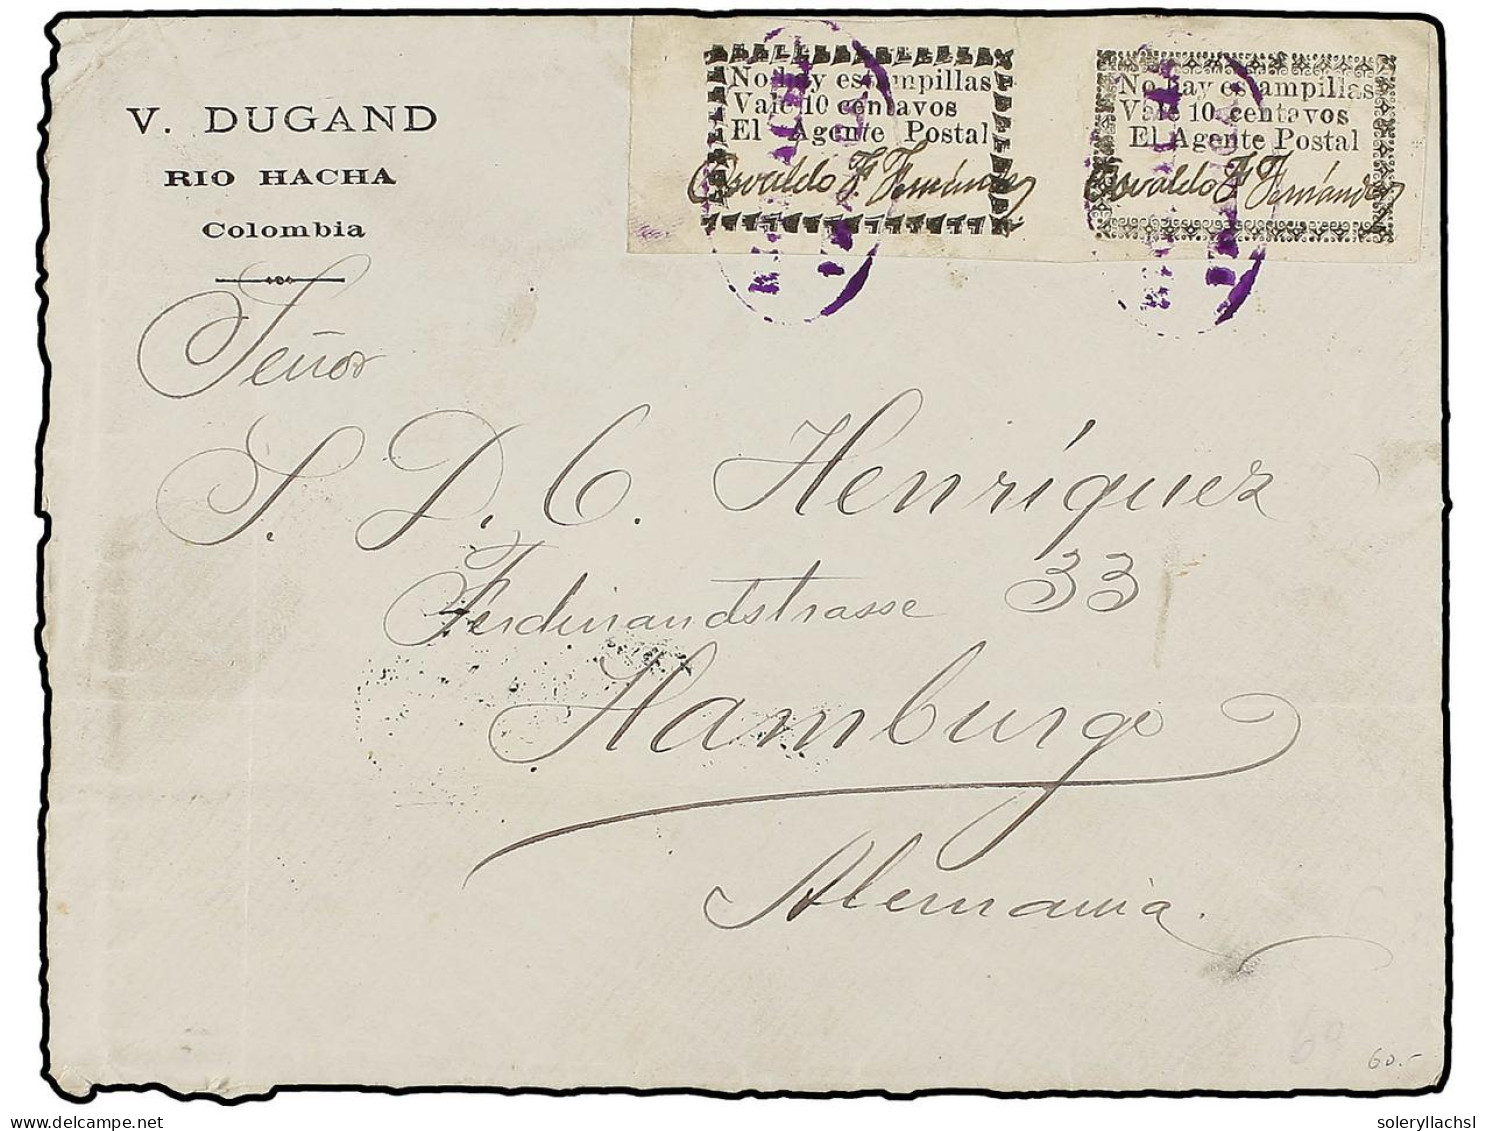 V. DUGAND
RIO HACHA
Colombia
No hay estampillas
Vale 10 centavos
El Agente Postal
Osvaldo F. Fernández
No hay estampillas
Vale 10 centavos
El Agente Postal
Osvaldo F. Fernández
Señor
S. D. C. Henríquez
Ferdinandstrasse 33
Hamburgo
Alemania.
60
60.-
delcampe.net
soleryllachsl